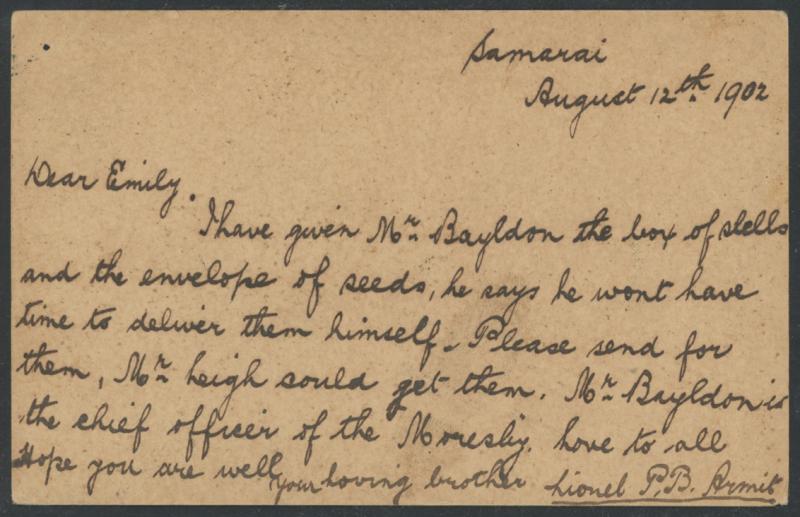 Samarai
August 12th 1902
Dear Emily.
I have given Mr Bayldon the box of shells
and the envelope of seeds, he says he wont have
time to deliver them himself. Please send for
them, Mr Leigh could get them. Mr Bayldon is
the chief officer of the Moresby. Love to all
Hope you are well Your Loving brother Lionel P.B. Armit